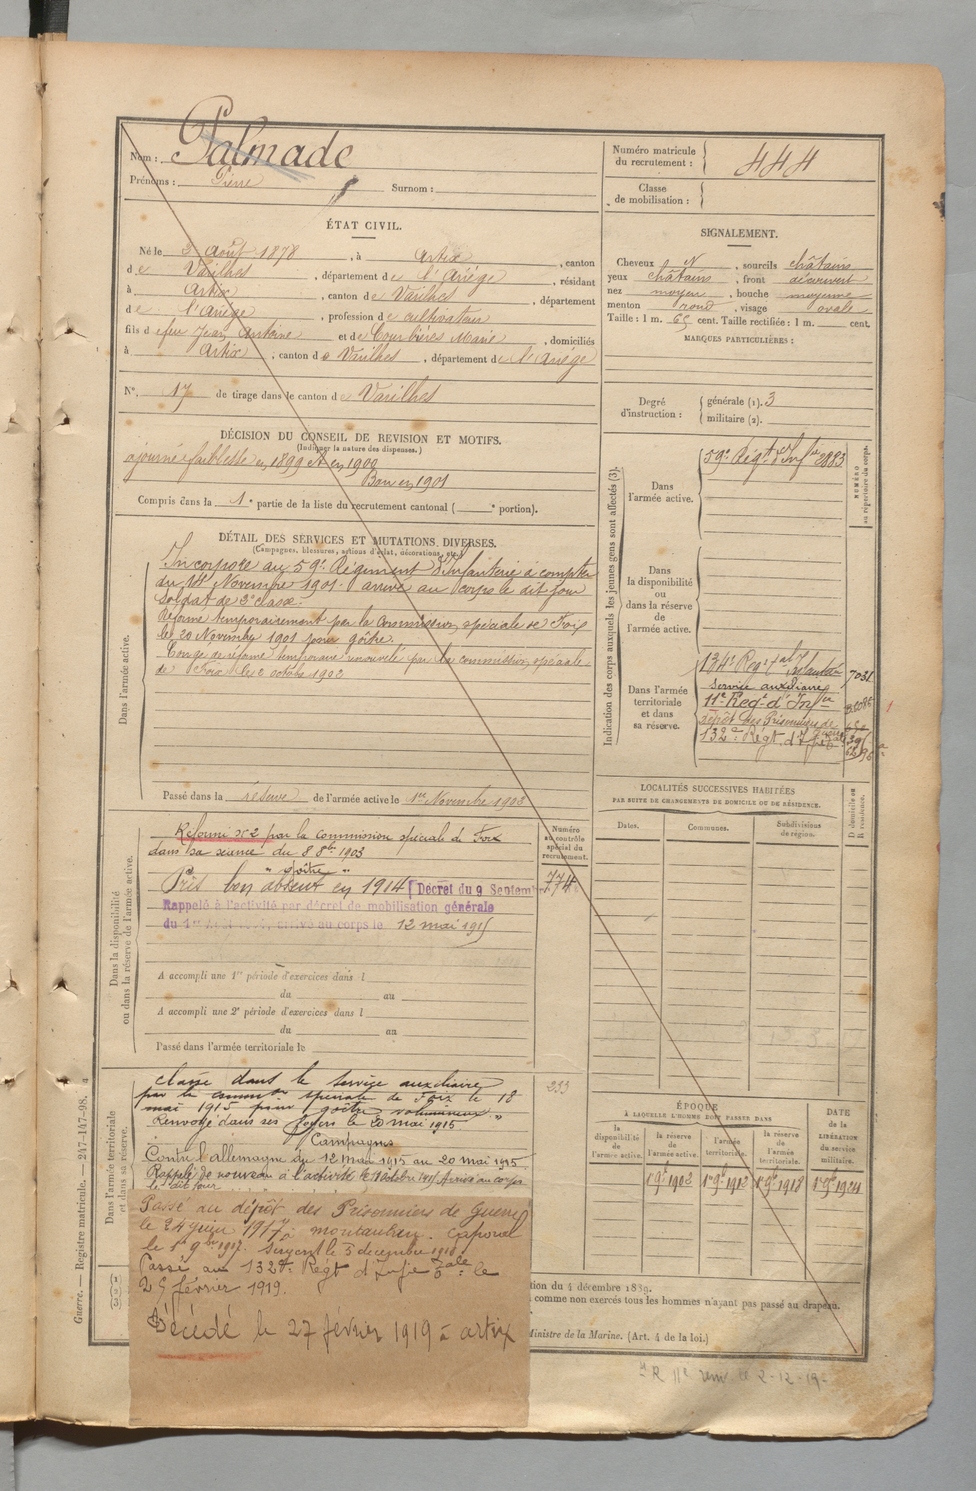 Nom : Palmade
Prénoms : Pierre Surnom :
Numéro matricule du recrutement : 444
Classe de mobilisation :
ÉTAT CIVIL.
Né le 3 Août 1878, à Artix, canton
de Varilhes, département de l'Ariège, résidant
à Artix, canton de Varilhes, département
de l'Ariège, profession de cultivateur
fils de feu Jean Antoine et de Courbières Marie, domiciliés
à Artix, canton de Varilhes, département de l'Ariège
N° 17 de tirage dans le canton de Varilhes
SIGNALEMENT.
Cheveux N, sourcils châtains
yeux châtains, front découvert
nez moyen, bouche moyenne
menton rond, visage ovale
Taille : 1 m. 65 cent. Taille rectifiée : 1 m. cent.
MARQUES PARTICULIÈRES :
Degré d'instruction : générale (1). 3
militaire (2).
DÉCISION DU CONSEIL DE REVISION ET MOTIFS.
(Indiquer la nature des dispenses.)
ajourné faiblesse en 1899 et en 1900
Bon en 1901
Compris dans la 1e partie de la liste du recrutement cantonal ( e portion).
DÉTAIL DES SERVICES ET MUTATIONS DIVERSES.
(Campagnes, blessures, actions d'éclat, décorations, etc.)
Dans l'armée active.
Incorporé au 59e Régiment d'Infanterie à compter
du 14 Novembre 1901. arrivé au corps le dit jour
Soldat de 2e classe.
Réformé temporairement par la commission spéciale de Foix
le 20 Novembre 1901 pour goître.
Congé de réforme temporaire renouvelé par la commission spéciale
de Foix le 2 octobre 1902
Passé dans la réserve de l'armée active le 1er Novembre 1903
Dans la disponibilité ou dans la réserve de l'armée active.
Réformé n° 2 par la commission spéciale de Foix
dans sa séance du 8 8bre 1903
" goître "
Pris bon absent en 1914 (Décret du 9 Septemb
Rappelé à l'activité par décret de mobilisation générale
du 1er arrivé au corps le 12 mai 1915
A accompli une 1re période d'exercices dans l
du au
A accompli une 2e période d'exercices dans l
du au
Passé dans l'armée territoriale le
Numéro au contrôle spécial du recrutement.
774
233
Dans l'armée territoriale et dans sa réserve.
classé dans le service auxiliaire
par la common spéciale de Foix le 18
mai 1915 pour goître volumineux "
Renvoyé dans ses foyers le 20 mai 1915
Campagnes
Contre l'Allemagne du 12 mai 1915 au 20 mai 1915
Rappelé de nouveau à l'activité le octobre 1915 Arrivé au corps
le dit jour
Passé au dépôt des Prisonniers de Guerre
le 24 juin 1917 à montauban. Caporal
le 1er 9bre 1917. Sergent le 5 decembre 1918
Passé au 132e Régt d'Infie le
25 février 1919.
Décédé le 27 fevrier 1919 à artix
Indication des corps auxquels les jeunes gens sont affectés (3).
NUMÉRO au répertoire du corps.
Dans l'armée active.
59e Régt d'Infie 2883
Dans la disponibilité ou dans la réserve de l'armée active.
Dans l'armée territoriale et dans sa réserve.
134e Regt tal Infanterie 7031
Service auxiliaire
11e Regt d'Infie
Dépôt des Prisonniers de Guerre
132e Régt d'Infie
LOCALITÉS SUCCESSIVES HABITÉES
PAR SUITE DE CHANGEMENTS DE DOMICILE OU DE RÉSIDENCE.
Dates. Communes. Subdivisions de région. D domicile ou R résidence.
ÉPOQUE
À LAQUELLE L'HOMME DOIT PASSER DANS
la disponibilité de l'armée active.
la réserve de l'armée active.
l'armée territoriale.
la réserve de l'armée territoriale.
DATE de la LIBÉRATION du service militaire.
1er 9bre 1902 1er 9bre 1912 1er 9bre 1918 1er 9bre 1924
tion du 4 décembre 1889.
comme non exercés tous les hommes n'ayant pas passé au drapeau.
Ministre de la Marine. (Art. 4 de la loi.)
Guerre. — Registre matricule. — 247-147-98.